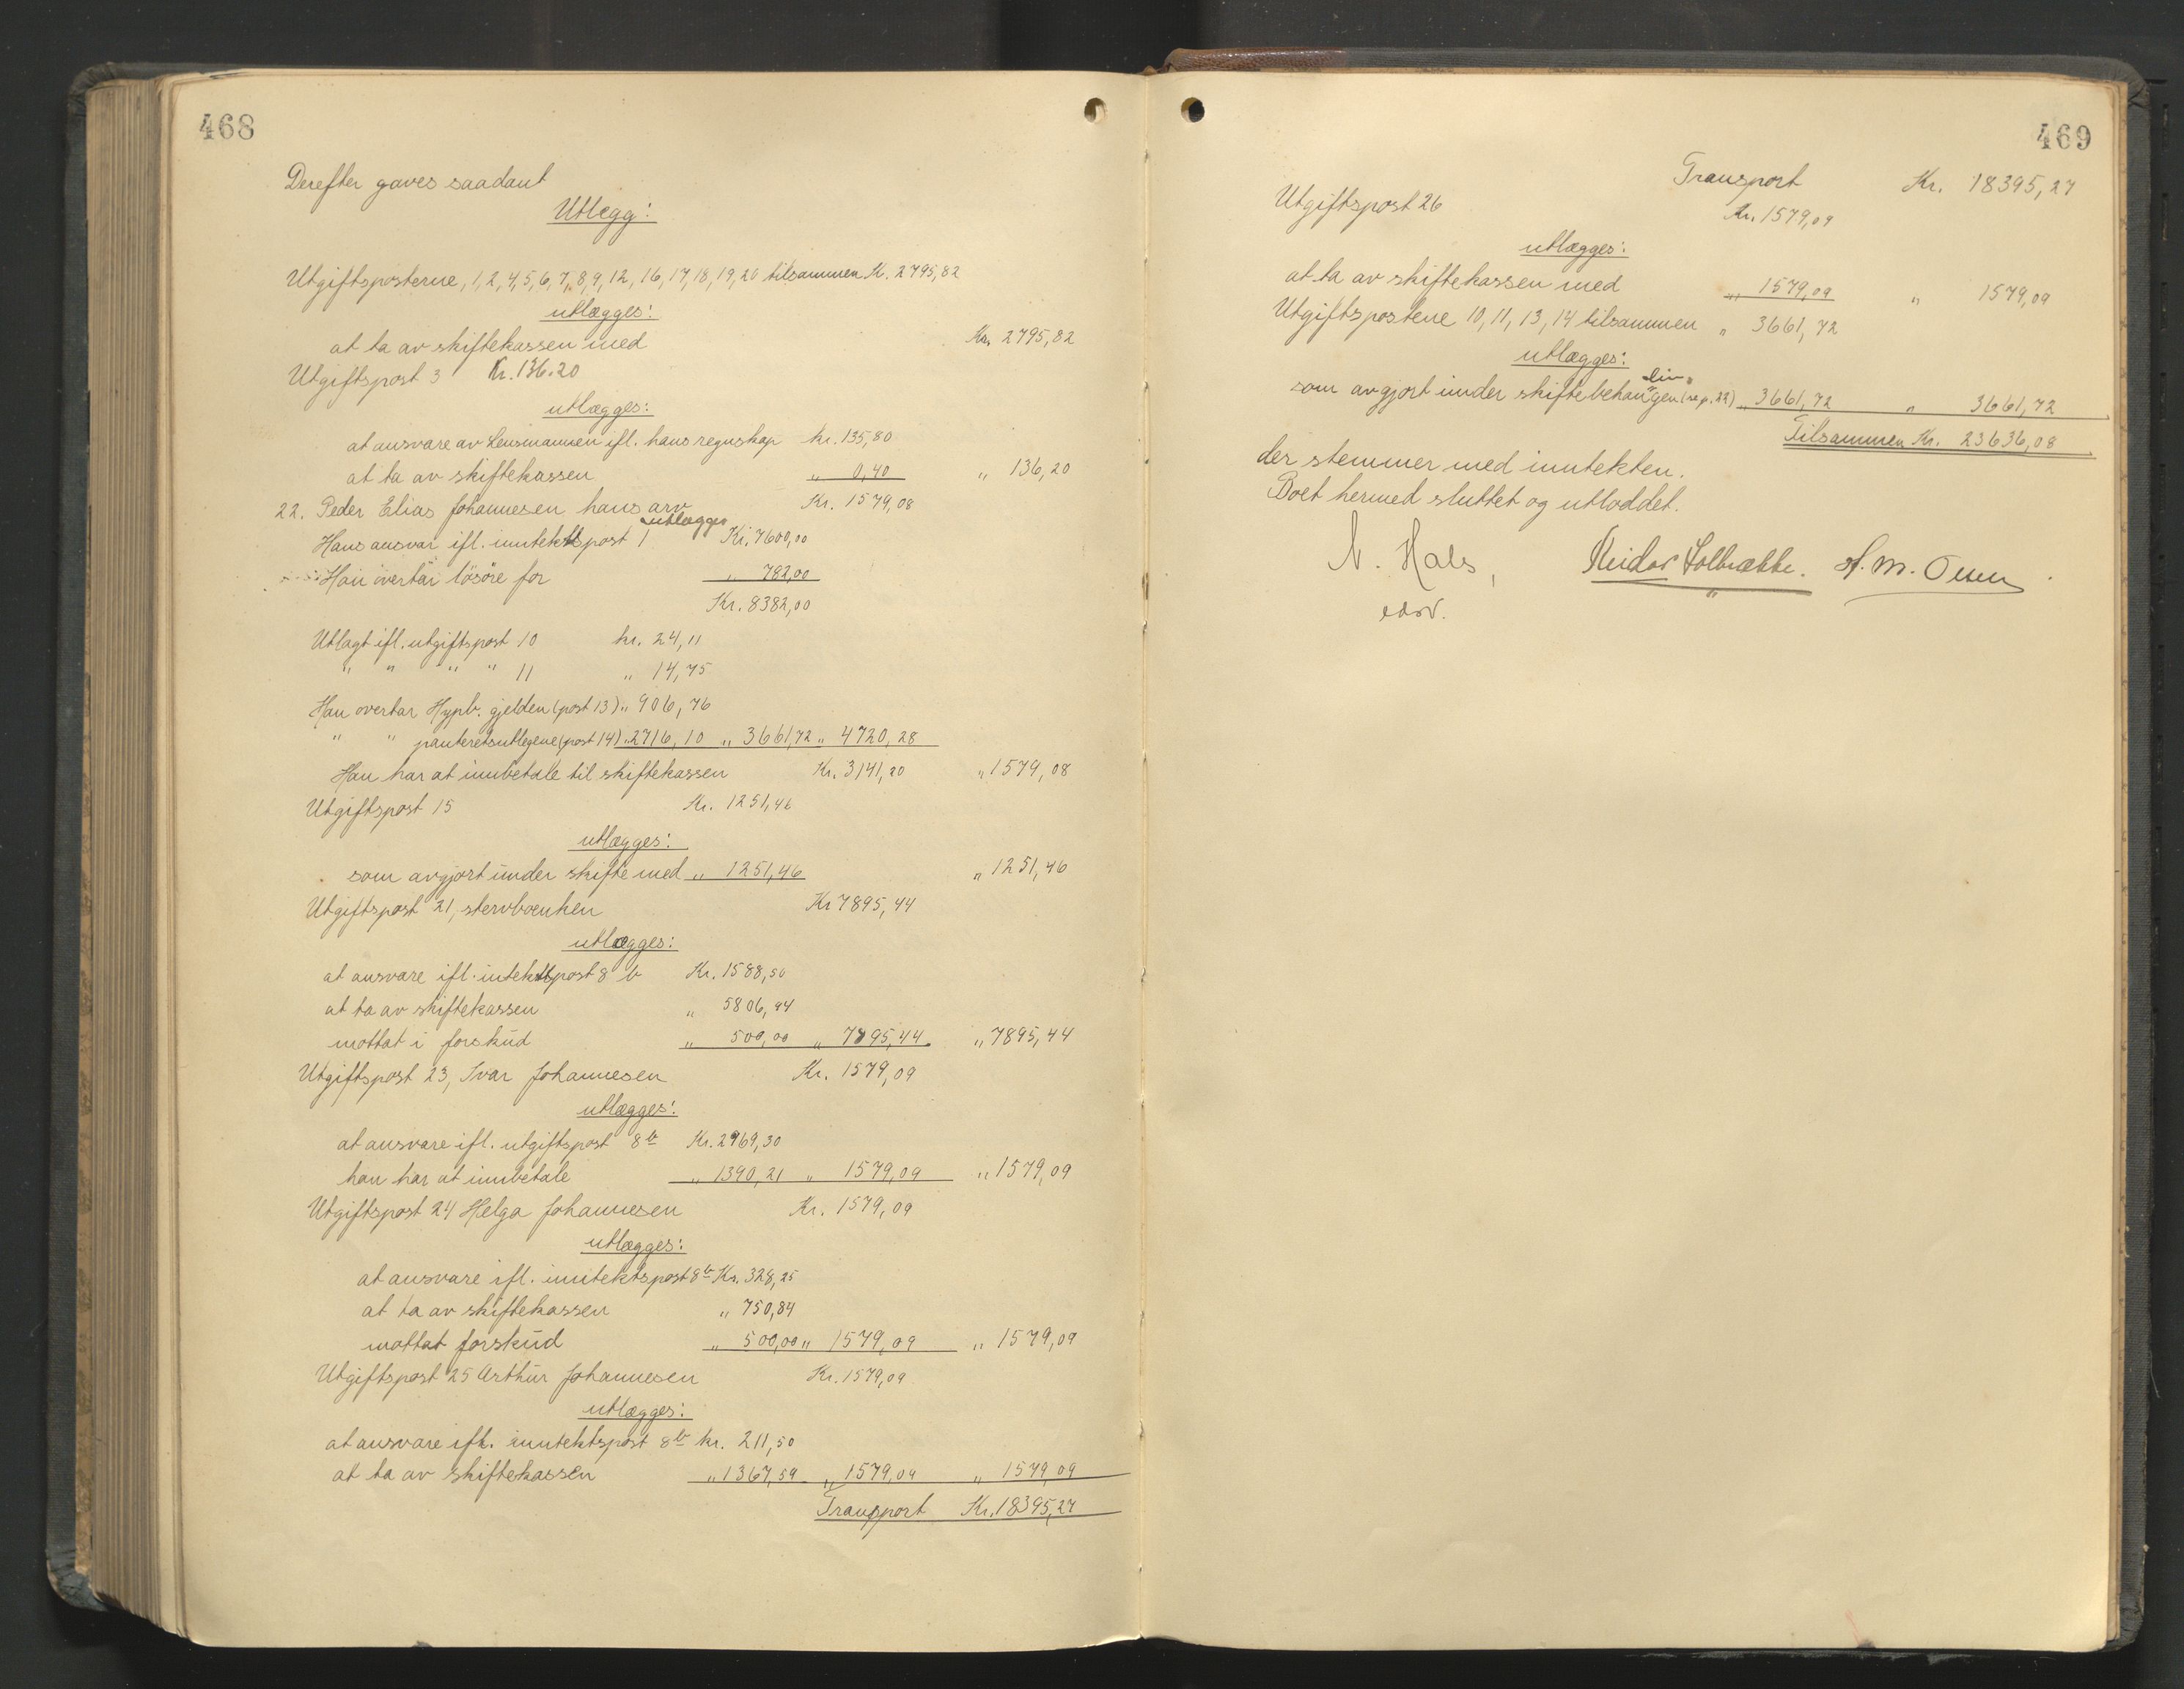 468
Derefter gaves saadant
Utlegg:
Utgiftsposterne, 1, 2, 4, 5, 6, 7, 8, 9, 12, 16, 17, 18, 19, 20 tilsammen Kr. 2795,82
utlægges:
at ta av skiftekassen med Kr. 2795,82
Utgiftspost 3 Kr. 136.20
utlægges:
at ansvare av Lensmannen ifl. hans regnskap kr. 135,80
at ta av skiftekassen " 0,40 " 136,20
22. Peder Elias Johannesen hans arv Kr. 1579,08
utlægges
Hans ansvar ifl. inntektspost 1 Kr. 7600,00
Han overtar lösöre for " 782,00
Kr. 8382,00
Utlagt ifl. utgiftspost 10 kr. 24,11
" " " " 11 " 14,75
Han overtar Hypb. gjelden (post 13) " 906,76
" " panteretsutlegene (post 14) " 2716,10 " 3661,72 " 4720,28
Han har at innbetale til skiftekassen Kr. 3141,20 " 1579,08
Utgiftspost 15 Kr. 1251,46
utlægges:
som avgjort under skifte med " 1251,46 " 1251,46
Utgiftspost 21, stervboenken Kr 7895,44
utlægges:
at ansvare ifl. intektspost 8 b Kr. 1588,50
at ta av skiftekassen " 5806,94
mottat i forskud " 500,00 " 7895,44 " 7895,44
Utgiftspost 23, Ivar Johannesen Kr. 1579,09
utlægges:
at ansvare ifl. utgiftspost 8 b Kr. 2969,30
han har at innbetale " 1390,21 " 1579,09 " 1579,09
Utgiftspost 24 Helga Johannesen Kr. 1579,09
utlægges:
at ansvare ifl. inntektspost 8 b Kr. 328,25
at ta av skiftekassen " 750,84
mottat forskud " 500,00 " 1579,09 " 1579,09
Utgiftspost 25 Arthur Johannesen Kr. 1579,09
utlægges:
at ansvare ifl. inntektspost 8 b kr. 211,50
at ta av skiftekassen " 1367,59 " 1579,09 " 1579,09
Transport Kr. 18395,27
469
Transport Kr. 18395,27
Utgiftspost 26 Kr. 1579,09
utlægges:
at ta av skiftekassen med " 1579,09 " 1579,09
Utgiftspostene 10, 11, 13, 14 tilsammen " 3661,72
utlægges:
som avgjort under skiftebehandlingen (se p. 22) " 3661,72 " 3661,72
Tilsammen Kr. 23636,08
der stemmer med inntekten.
Boet hermed sluttet og utloddet.
N. Hals, Reidar Solbrække. A. M. Olsen